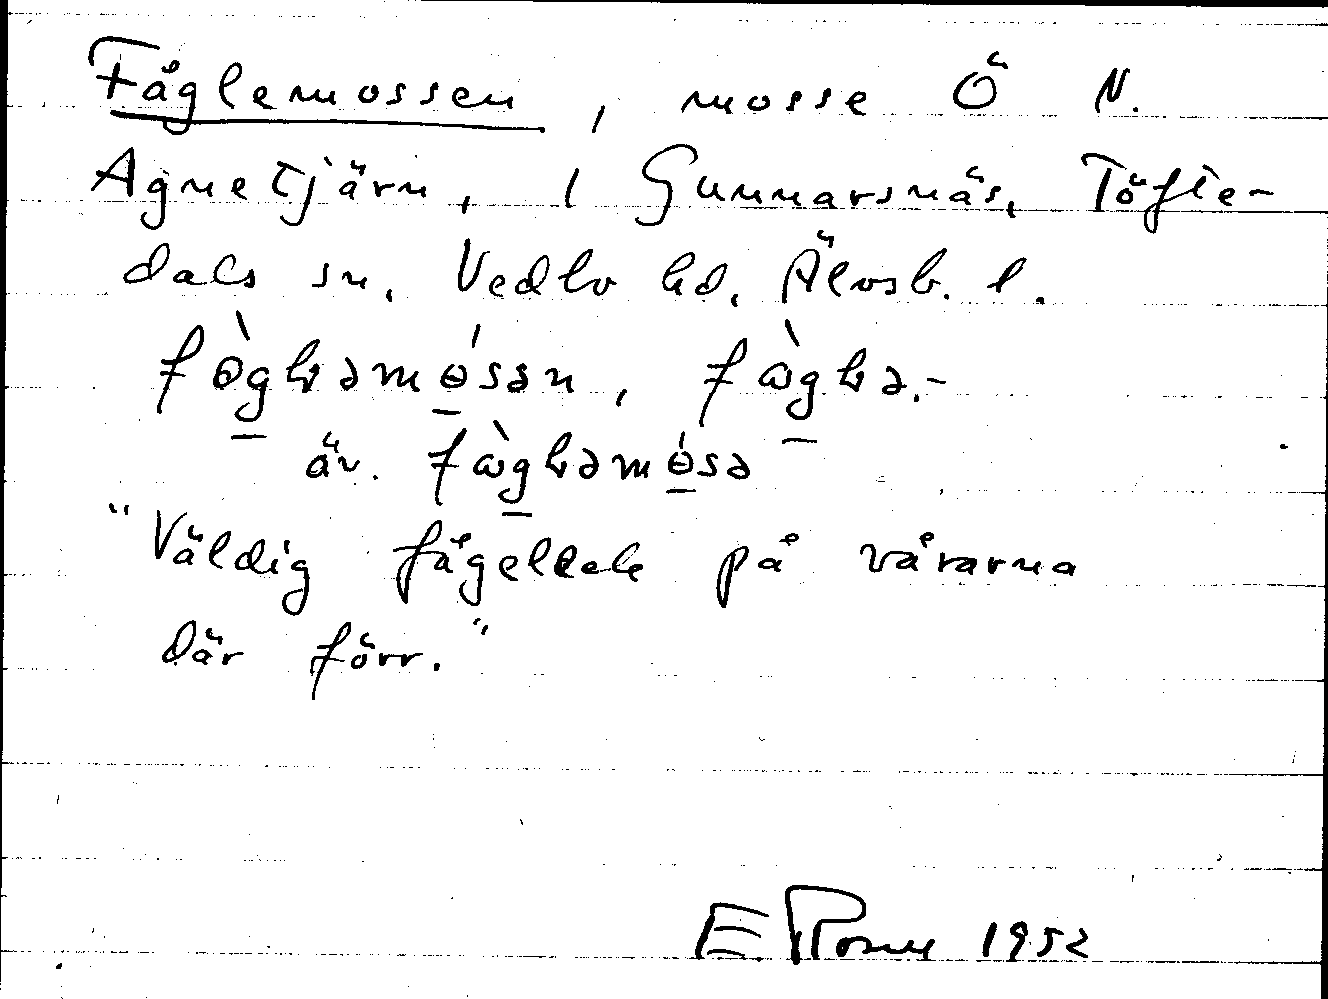 Fåglemossen, mosse Ö N.
Agnetjärn, i Gunnarsnäs, Töfte-
dals sn, Vedbo hd, Älvsb. l.
fògləmósən, fàglə-
äv. fàgləmósə
"Väldig fågellek på vårarna
där förr."
E. 1952